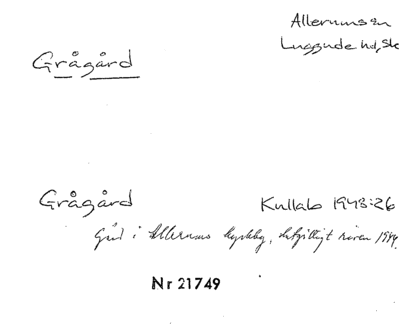 Allerums sn
Luggude hd, Sk
Grågård
Grågård Kullab 1943:26
Gård i Allerums kyrkby, 1944.
Nr 21749